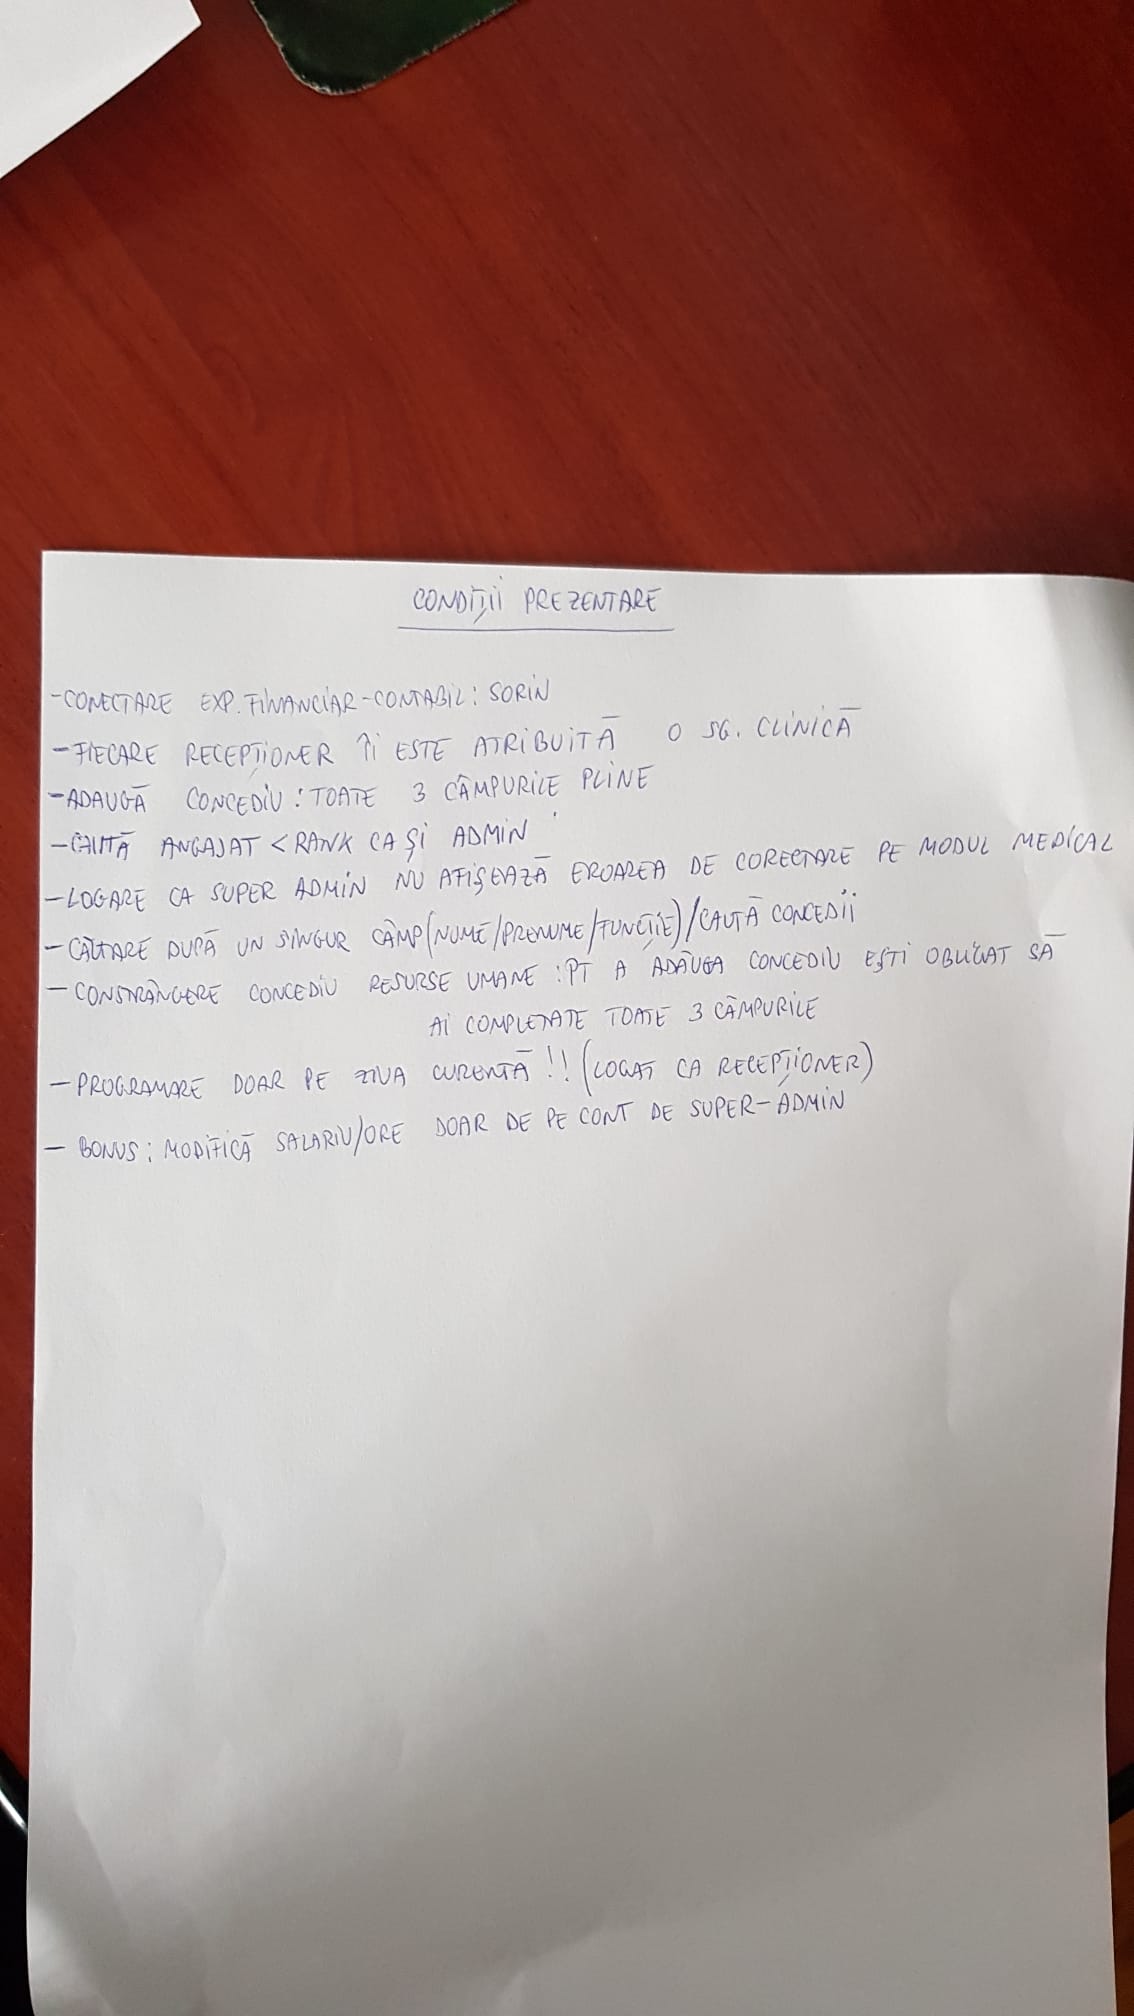 CONDIȚII PREZENTARE
-CONECTARE EXP. FINANCIAR-CONTABIL: SORIN
-FIECARE RECEPȚIONER ÎI ESTE ATRIBUITĂ O SG. CLINICĂ
-ADAUGĂ CONCEDIU: TOATE 3 CÂMPURILE PLINE
-CAUTĂ ANGAJAT < RANK CA ȘI ADMIN
-LOGARE CA SUPER ADMIN NU AFIȘEAZĂ EROAREA DE CORECTARE PE MODUL MEDICAL
-CĂUTARE DUPĂ UN SINGUR CÂMP (NUME/PRENUME/FUNCȚIE)/CAUTĂ CONCEDII
-CONSTRÂNGERE CONCEDIU RESURSE UMANE: PT A ADĂUGA CONCEDIU EȘTI OBLIGAT SĂ
AI COMPLETATE TOATE 3 CÂMPURILE
-PROGRAMARE DOAR PE ZIUA CURENTĂ!! (LOGAT CA RECEPȚIONER)
- BONUS: MODIFICĂ SALARIU/ORE DOAR DE PE CONT DE SUPER-ADMIN